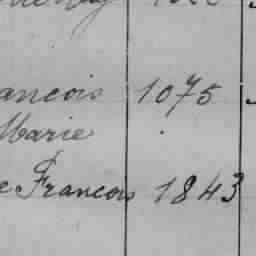 ancois 1075
Marie
e Francois 1843